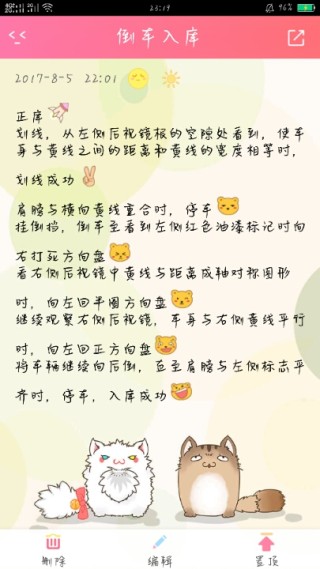 23:19
96%
倒车入库
2017-8-5 22:01
正库
划线，从左侧后视镜根的空隙处看到，使车
身与黄线之间的距离和黄线的宽度相等时，
划线成功
肩膀与横向黄线重合时，停车
挂倒挡，倒车至看到左侧红色油漆标记时向
右打死方向盘
看右侧后视镜中黄线与距离成轴对称图形
时，向左回半圈方向盘
继续观察右侧后视镜，车身与右侧黄线平行
时，向左回正方向盘
将车辆继续向后倒，直至肩膀与左侧标志平
齐时，停车，入库成功
删除
编辑
置顶